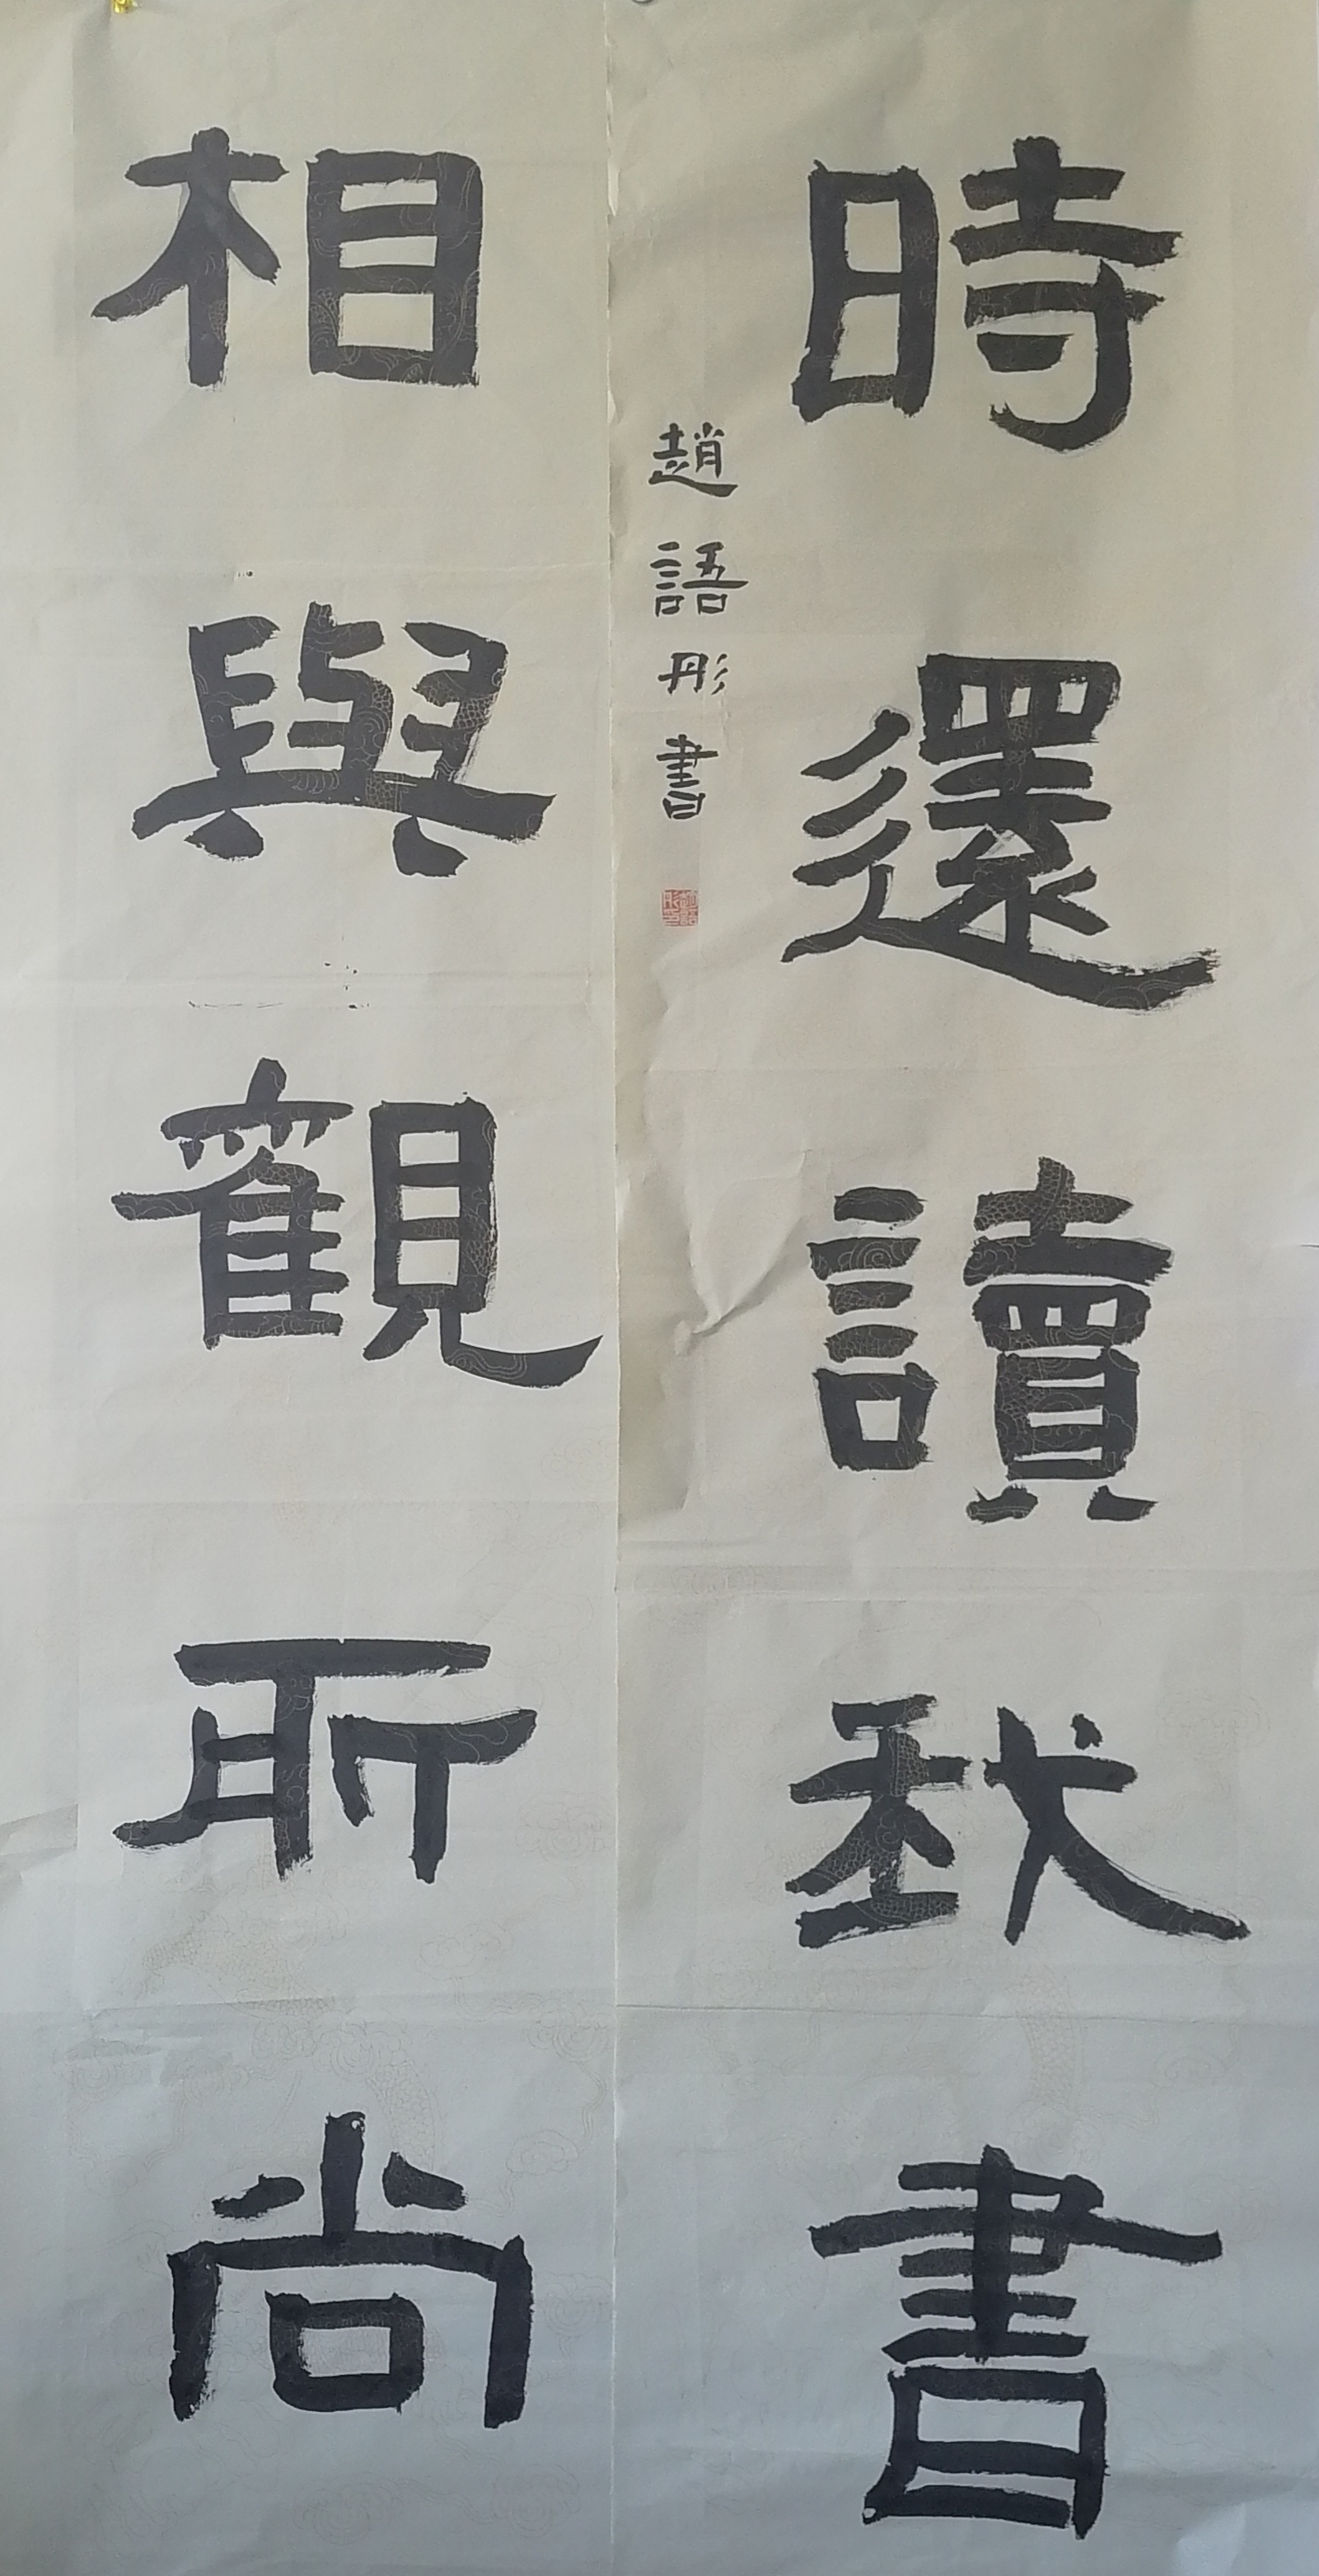 時還讀我書
趙語彤書
相與觀所尚